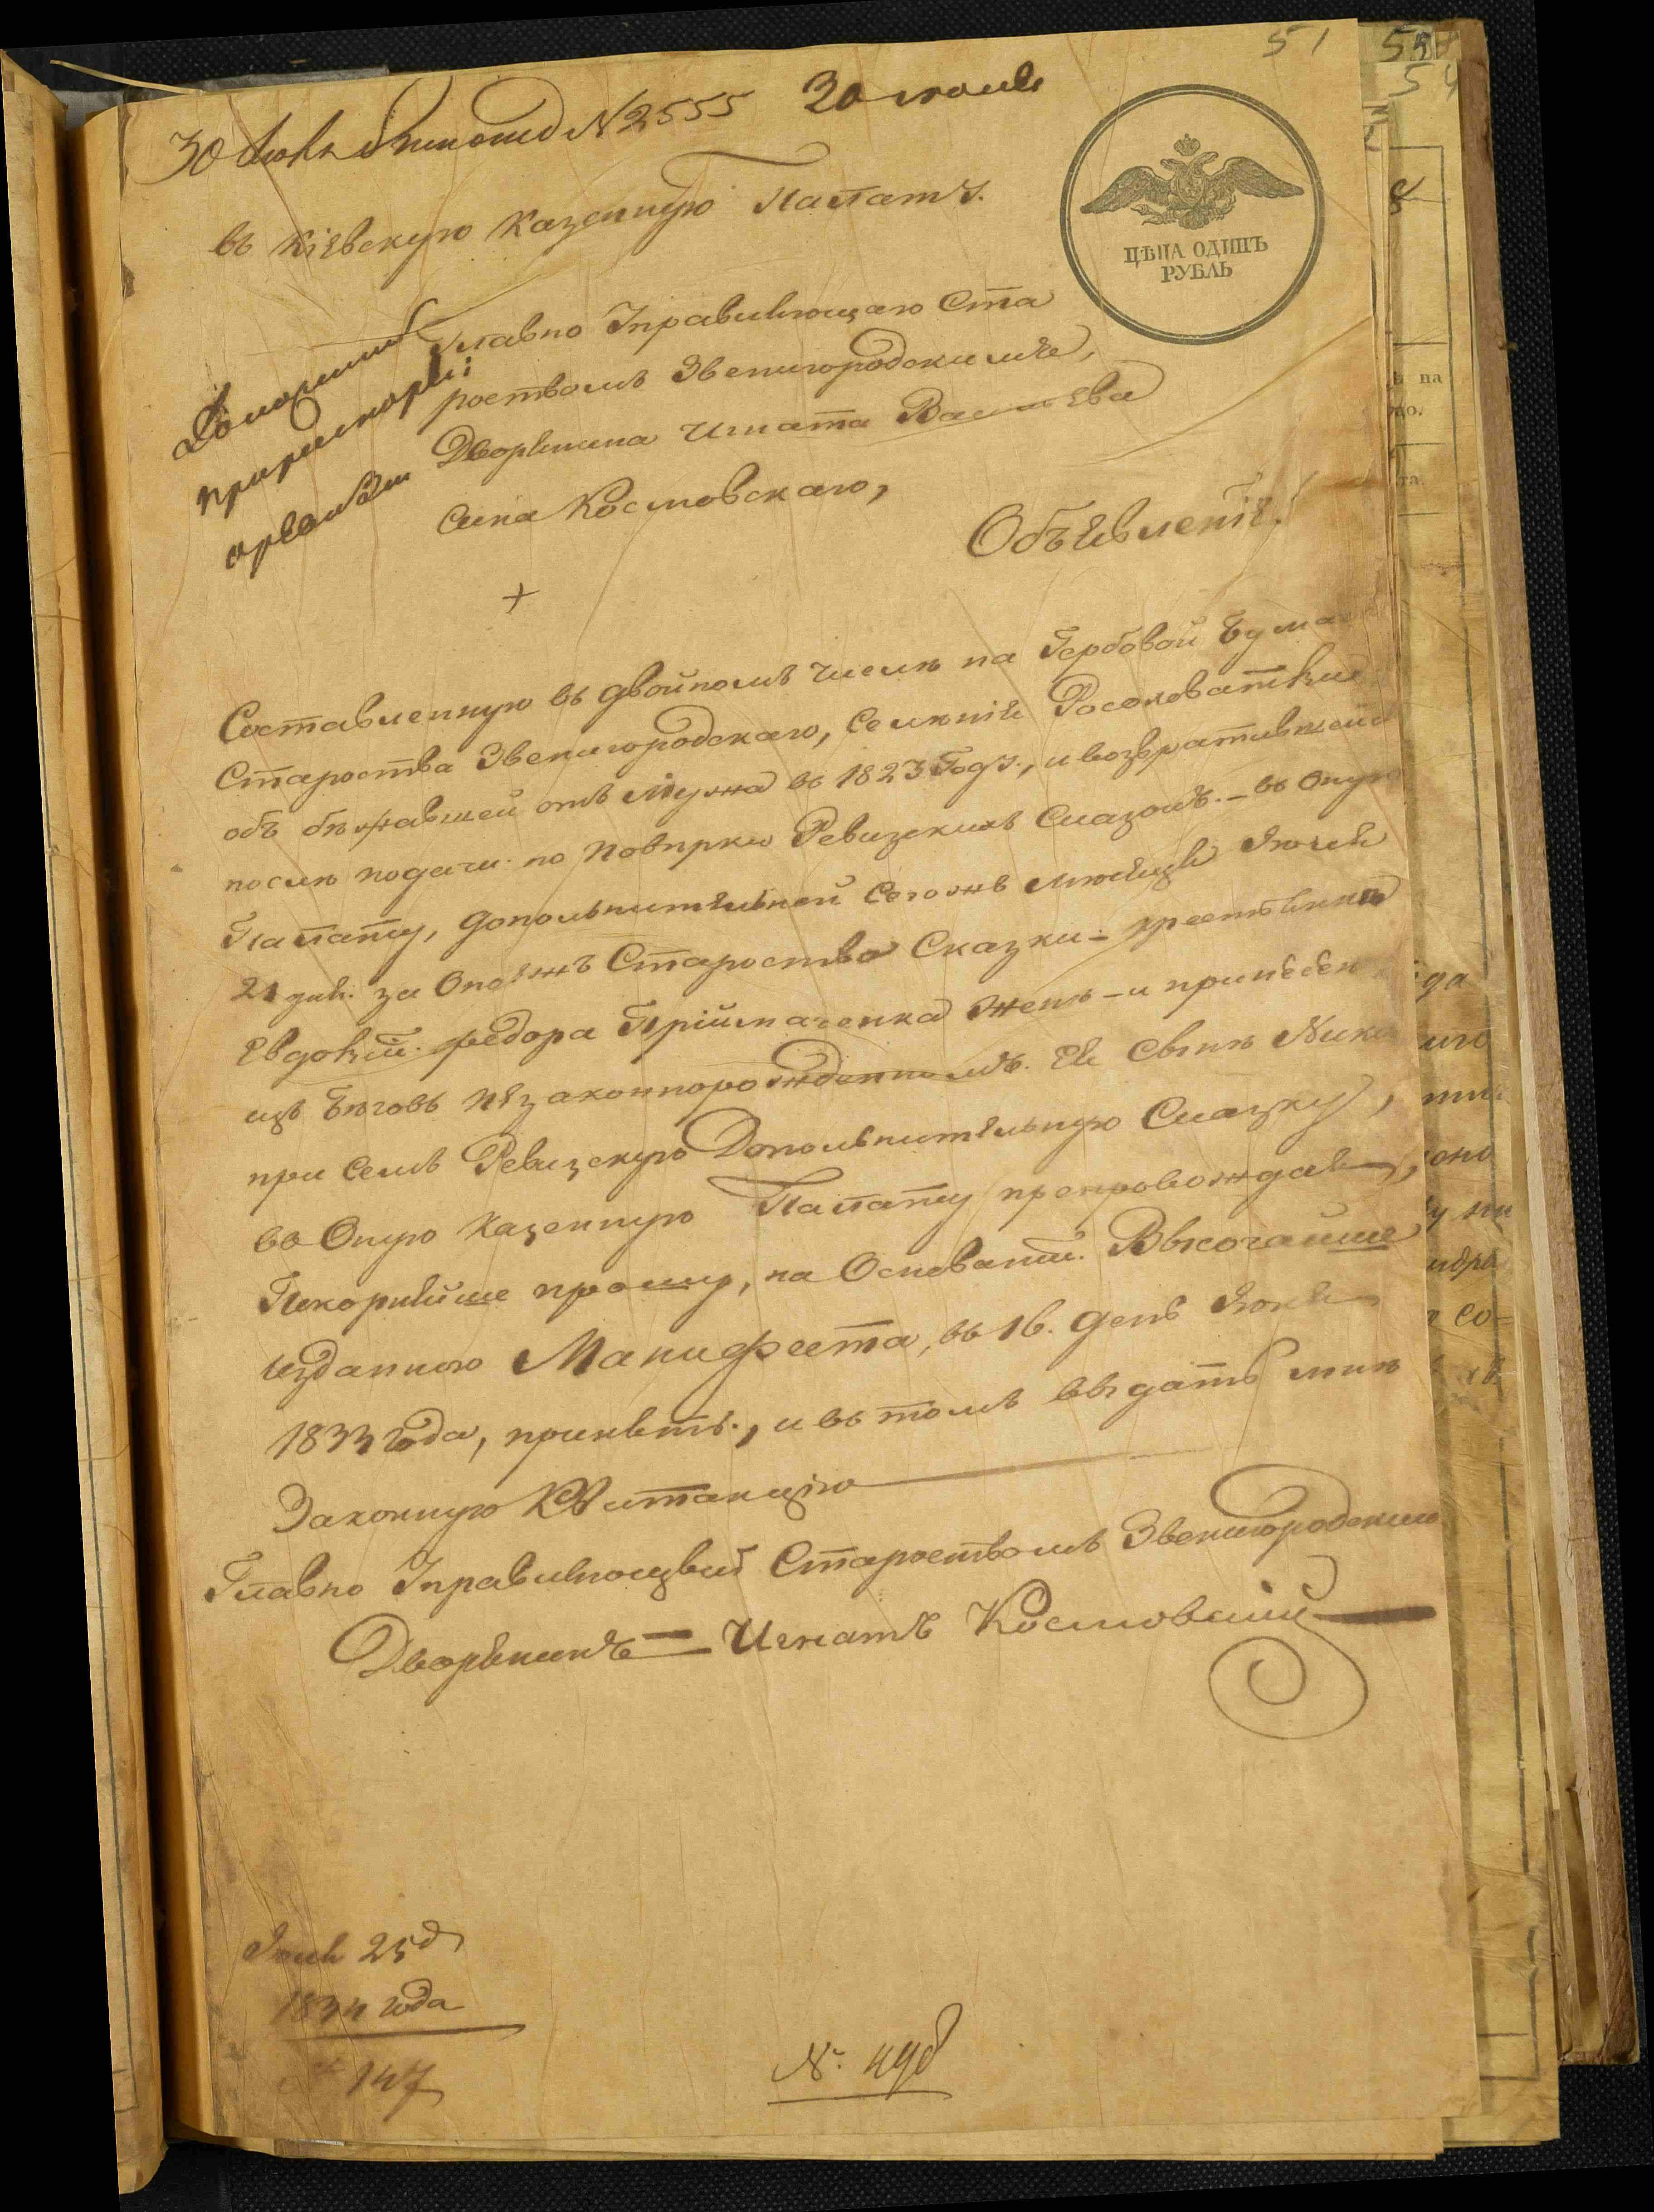 51
30 Июля № 2555 30 июля
въ Кіевскую Казенную Палату.
ЦѢНА ОДИНЪ
РУБЛЬ
Главно Управляющаго Ста
роствомъ Звенигородскимъ,
Дворянина Игната Васильева
Сина Космовскаго,
Объявленіе!
Составленную въ двойномъ числѣ на Гербовой Бума
Староства Звенигородскаго, Селѣнія Росоховатки
объ бѣжавшей отъ Мужа въ 1823 Году, и возвратившейся
послѣ подачи по Повѣрки Ревизскихъ Сказокъ. – въ Оную
Палату, дополнительной Сегожъ мѣсяца Іюля
21 дня. за Оножъ Староство Сказки – крестьянки
Евдокіи Федора Пріймаченка Женѣ – и принесен
изъ Бѣговъ незаконнорожденномъ. Ея Сынѣ Ники
при семъ Ревизскую Дополнительную Сказку,
во Оную Казенную Палату препровождая,
Покорнѣйше прошу, на Основаніи Высочайше
изданного Манифеста, въ 16. день Іюня
1833 года, принять, и въ томъ выдать мнѣ
Законную Квитанцію
Главно Управляющый Староствомъ Звенигородским
Дворянинъ = Игнатъ Космовский
Іюля 25 д
1834 года
№ 147